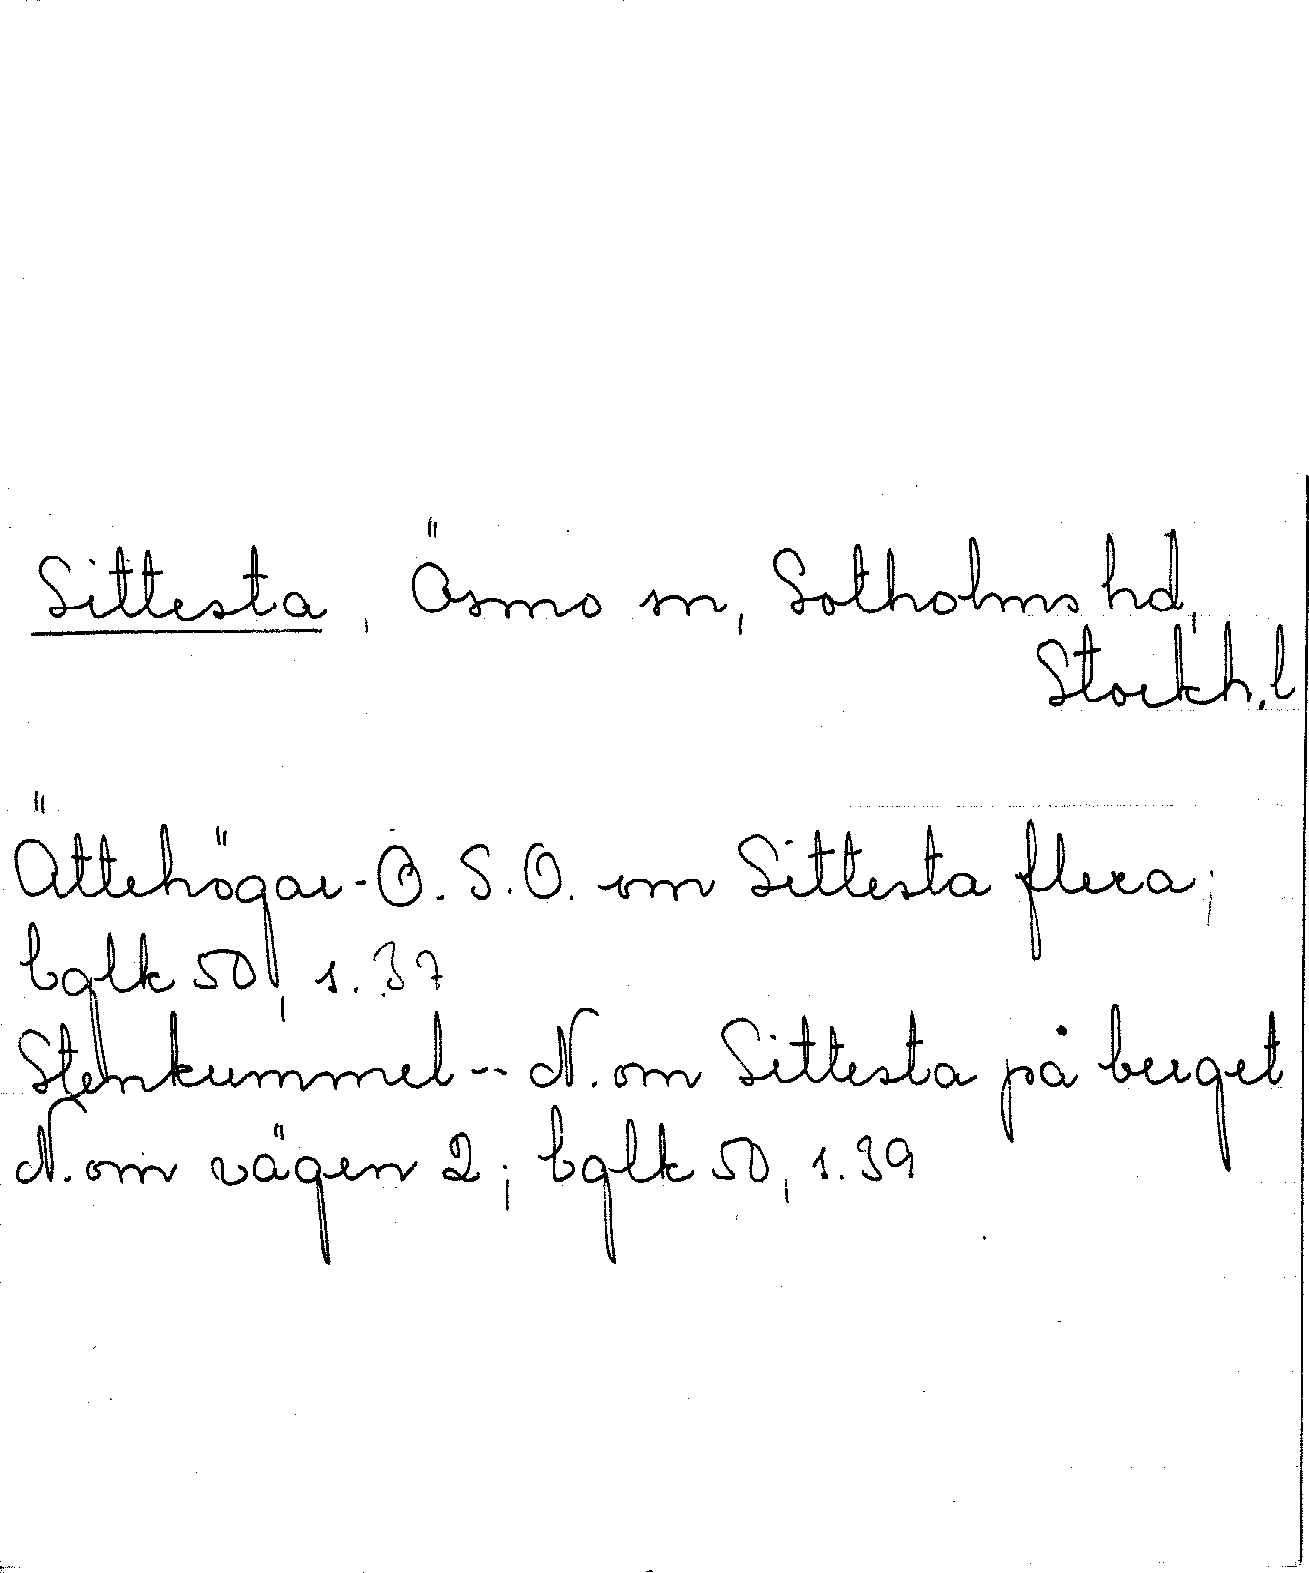 Sittesta, Ösmo sn, Sotholms hd,
Stockh.l
Ättehögar - O. S. O. om Sittesta flera;
bglk 50, s. 37
Stenkummel -- N. om Sittesta på berget
N. om vägen 2; bglk 50, s. 39